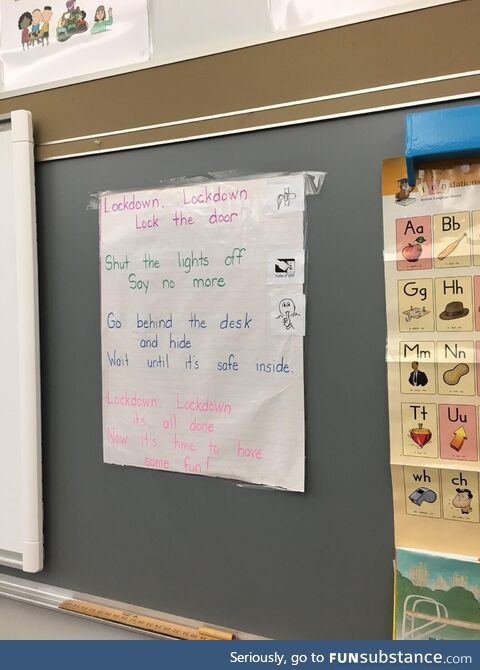 Lockdown, Lockdown
Lock the door
Shut the lights off
Say no more
Go behind the desk
and hide
Wait until it's safe inside.
Lockdown Lockdown
it's all done
Now it's time to have
some fun!
Aa Bb
Gg Hh
Mm Nn
Tt Uu
wh ch
Seriously, go to FUNsubstance.com